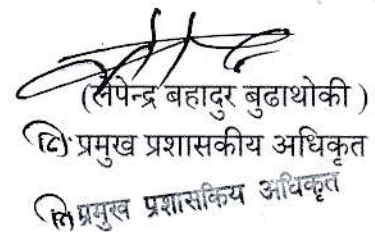 (लपेन्द्र बहादुर बुढाथोकी )
प्रमुख प्रशासकीय अधिकृत
प्रमुख प्रशासकिय अधिकृत